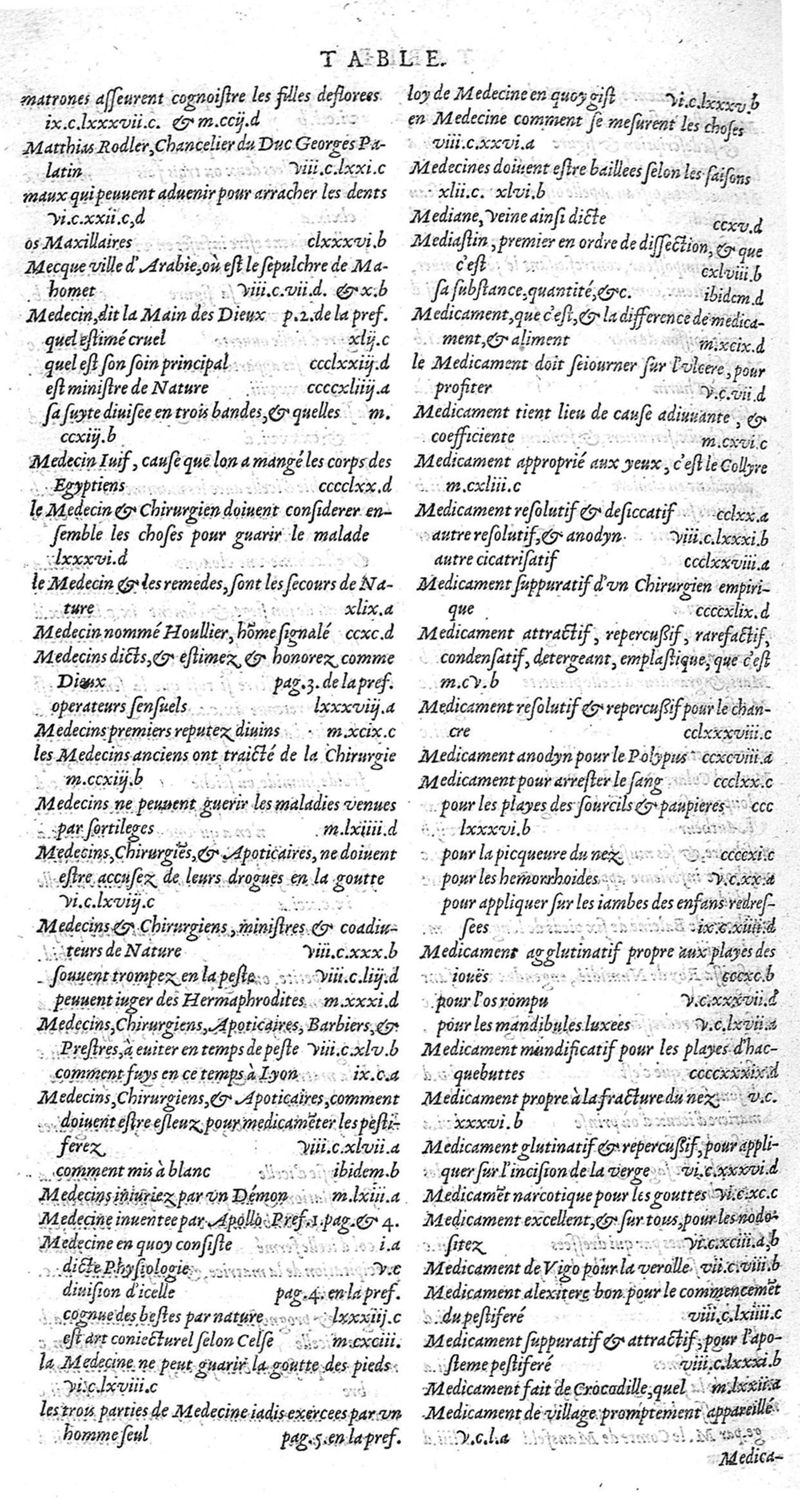 TABLE.
matrones asseurent cognoistre les filles deflorees
ix.c.lxxxvii.c. & m.ccij.d
Matthias Rodler, Chancelier du Duc Georges Pa-
latin viii.c.lxxi.c
maux qui peuuent aduenir pour arracher les dents
vi.c.xxii.c,d
os Maxillaires clxxxvi.b
Mecque ville d'Arabie, où est le sepulchre de Ma-
homet viii.c.vii.d. & x.b
Medecin, dit la Main des Dieux p.2. de la pref.
quel estimé cruel xlij.c
quel est son soin principal ccclxxiij.d
est ministre de Nature ccccxliiij.a
sa suyte diuisee en trois bandes, & quelles m.
ccxiij.b
Medecin Iuif, cause que lon a mangé les corps des
Egyptiens cccclxx.d
le Medecin & Chirurgien doiuent considerer en-
semble les choses pour guarir le malade
lxxxvi.d
le Medecin & les remedes, sont les secours de Na-
ture xlix.a
Medecin nommé Houllier, hõme signalé ccxc.d
Medecins dicts, & estimez & honorez comme
Dieux pag.3. de la pref.
operateurs sensuels lxxxviij.a
Medecins premiers reputez diuins m.xcix.c
les Medecins anciens ont traicté de la Chirurgie
m.ccxiij.b
Medecins ne peuuent guerir les maladies venues
par sortileges m.lxiiii.d
Medecins, Chirurgiẽs, & Apoticaires, ne doiuent
estre accusez de leurs drogues en la goutte
vi.c.lxviij.c
Medecins & Chirurgiens, ministres & coadiu-
teurs de Nature viii.c.xxx.b
souuent trompez en la peste viii.c.liij.d
peuuent iuger des Hermaphrodites m.xxxi.d
Medecins, Chirurgiens, Apoticaires, Barbiers, &
Prestres, à euiter en temps de peste viii.c.xlv.b
comment fuys en ce temps à Lyon ix.c.a
Medecins, Chirurgiens, & Apoticaires, comment
doiuent estre esleuz pour medicamẽter les pesti-
ferez viii.c.xlvii.a
comment mis à blanc ibidem.b
Medecins iniuriez par vn Démon m.lxiii.a
Medecine inuentee par Apollo Pref.1.pag.& 4.
Medecine en quoy consiste i.a
dicte Physiologie v.c
diuision d'icelle pag.4. en la pref.
cognue des bestes par nature lxxxiij.c
est art coniecturel selon Celse m.cxciii.
la Medecine ne peut guarir la goutte des pieds
vi.c.lxviii.c
les trois parties de Medecine iadis exercees par vn
homme seul pag.5. en la pref.
loy de Medecine en quoy gist vi.c.lxxxv.b
en Medecine comment se mesurent les choses
viii.c.xxvi.a
Medecines doiuent estre baillees selon les saisons
xlii.c. xlvi.b
Mediane, veine ainsi dicte ccxv.d
Mediastin, premier en ordre de dissection, & que
c'est cxlviii.b
sa substance, quantité, &c. ibidem.d
Medicament, que c'est, & la difference de medica-
ment, & aliment m.xcix.d
le Medicament doit seiourner sur l'vlcere, pour
profiter v.c.vii.d
Medicament tient lieu de cause adiuuante, &
coefficiente m.cxvi.c
Medicament approprié aux yeux, c'est le Collyre
m.cxliii.c
Medicament resolutif & desiccatif cclxx.a
autre resolutif, & anodyn viii.c.lxxxi.b
autre cicatrisatif ccclxxviii.a
Medicament suppuratif d'vn Chirurgien empiri-
que ccccxlix.d
Medicament attractif, repercussif, rarefactif,
condensatif, detergeant, emplastique, que c'est
m.cv.b
Medicament resolutif & repercussif pour le chan-
cre cclxxxviii.c
Medicament anodyn pour le Polypus ccxcviii.a
Medicament pour arrester le sang ccclxx.c
pour les playes des sourcils & paupieres ccc
lxxxvi.b
pour la picqueure du nez ccccxi.c
pour les hemorrhoides v.c.xx.a
pour appliquer sur les iambes des enfans redres-
sees ix.c.xiiii.d
Medicament agglutinatif propre aux playes des
ioues cccxc.b
pour l'os rompu v.c.xxxvii.d
pour les mandibules luxees v.c.lxvii.a
Medicament mundificatif pour les playes d'hac-
quebuttes ccccxxxix.d
Medicament propre à la fracture du nez v.c.
xxxvi.b
Medicament glutinatif & repercussif, pour appli-
quer sur l'incision de la verge vi.c.xxxvi.d
Medicamẽt narcotique pour les gouttes vi.c.xc.c
Medicament excellent, & sur tous, pour les nodo-
sitez vi.c.xciii.a,b
Medicament de Vigo pour la verolle vii.c.viii.b
Medicament alexitere bon pour le commencemẽt
du pestiferé viii.c.lxiiii.c
Medicament suppuratif & attractif, pour l'apo-
steme pestiferé viii.c.lxxxi.b
Medicament fait de Crocodille, quel m.lxxii.a
Medicament de village promptement appareillé
v.c.l.a
Medica-